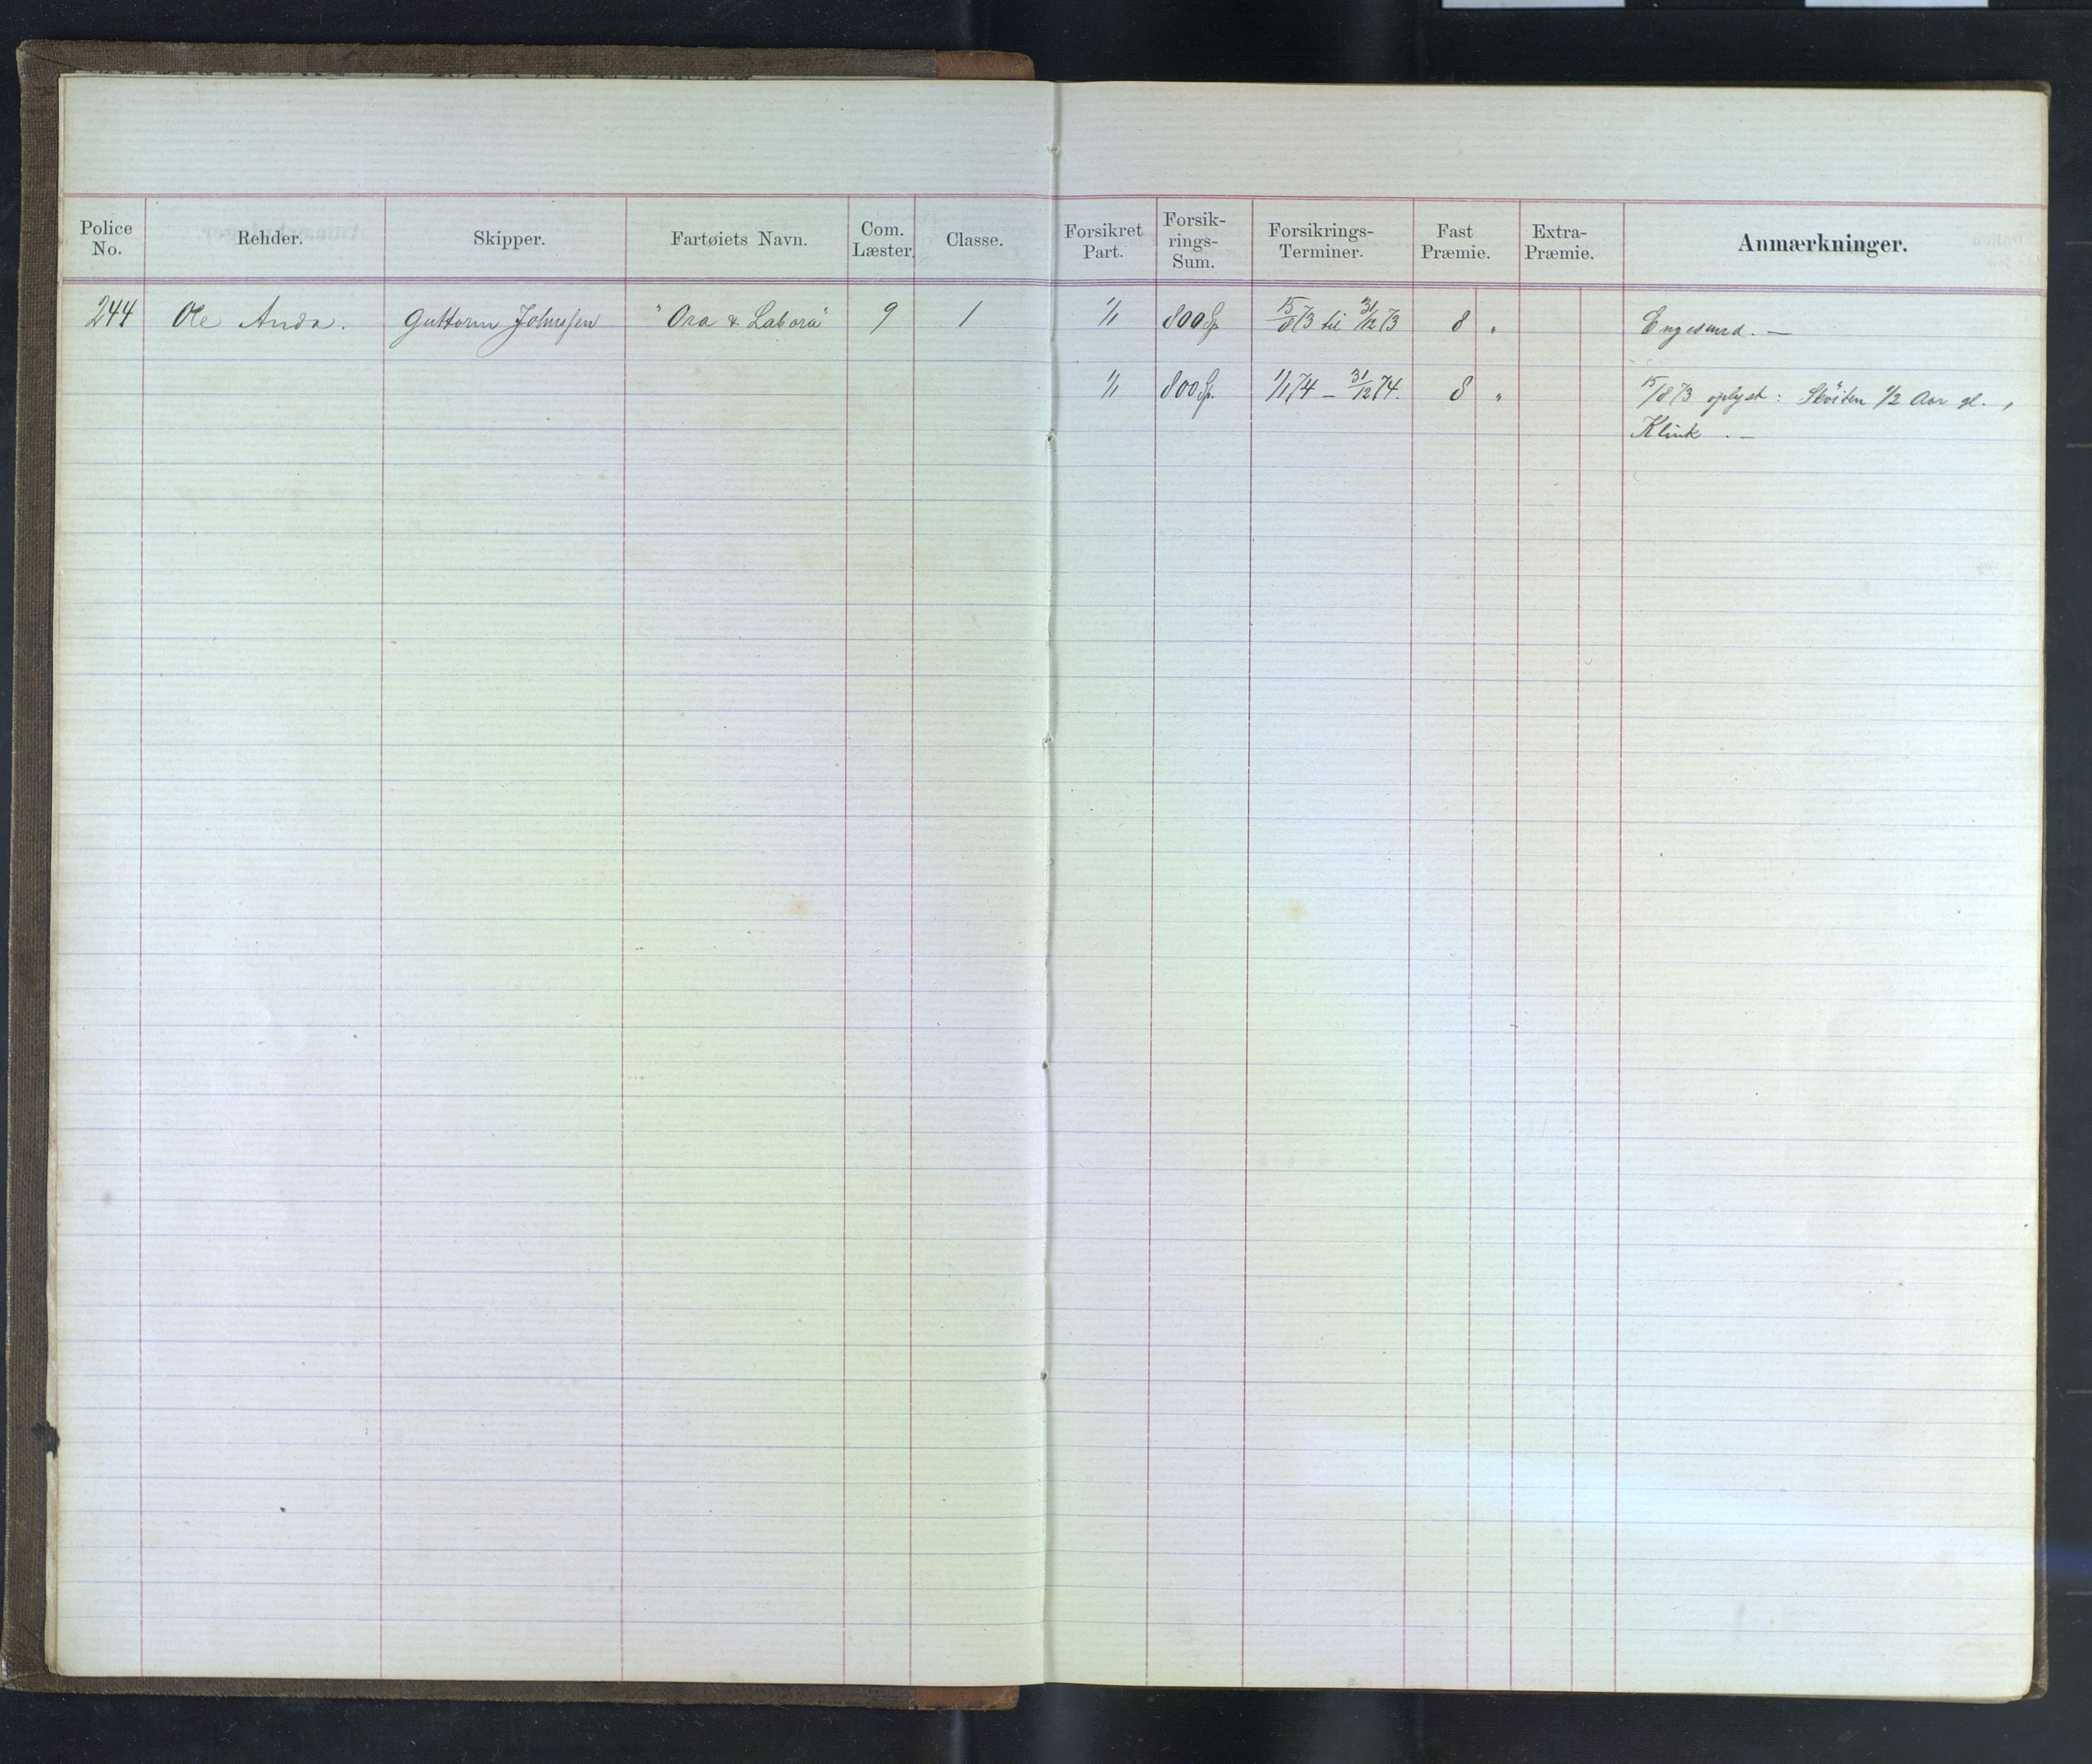 Police No. Rehder. Skipper. Fartøiets Navn. Com. Læster. Classe. Forsikret Part. Forsik-rings-Sum. Forsikrings-Terminer. Fast Præmie. Extra-Præmie. Anmærkninger.
244 Ole Anda. Guttorm Johnssen "Ora & Labora" 9 1 1/1 800 Sp. 15/8 73 til 31/12 73 8 " Engesund. —
1/1 800 Sp. 1/1 74 — 31/12 74. 8 " 15/8 73 oplyst: Skøiten 1/2 Aar gl.,
Klink. —